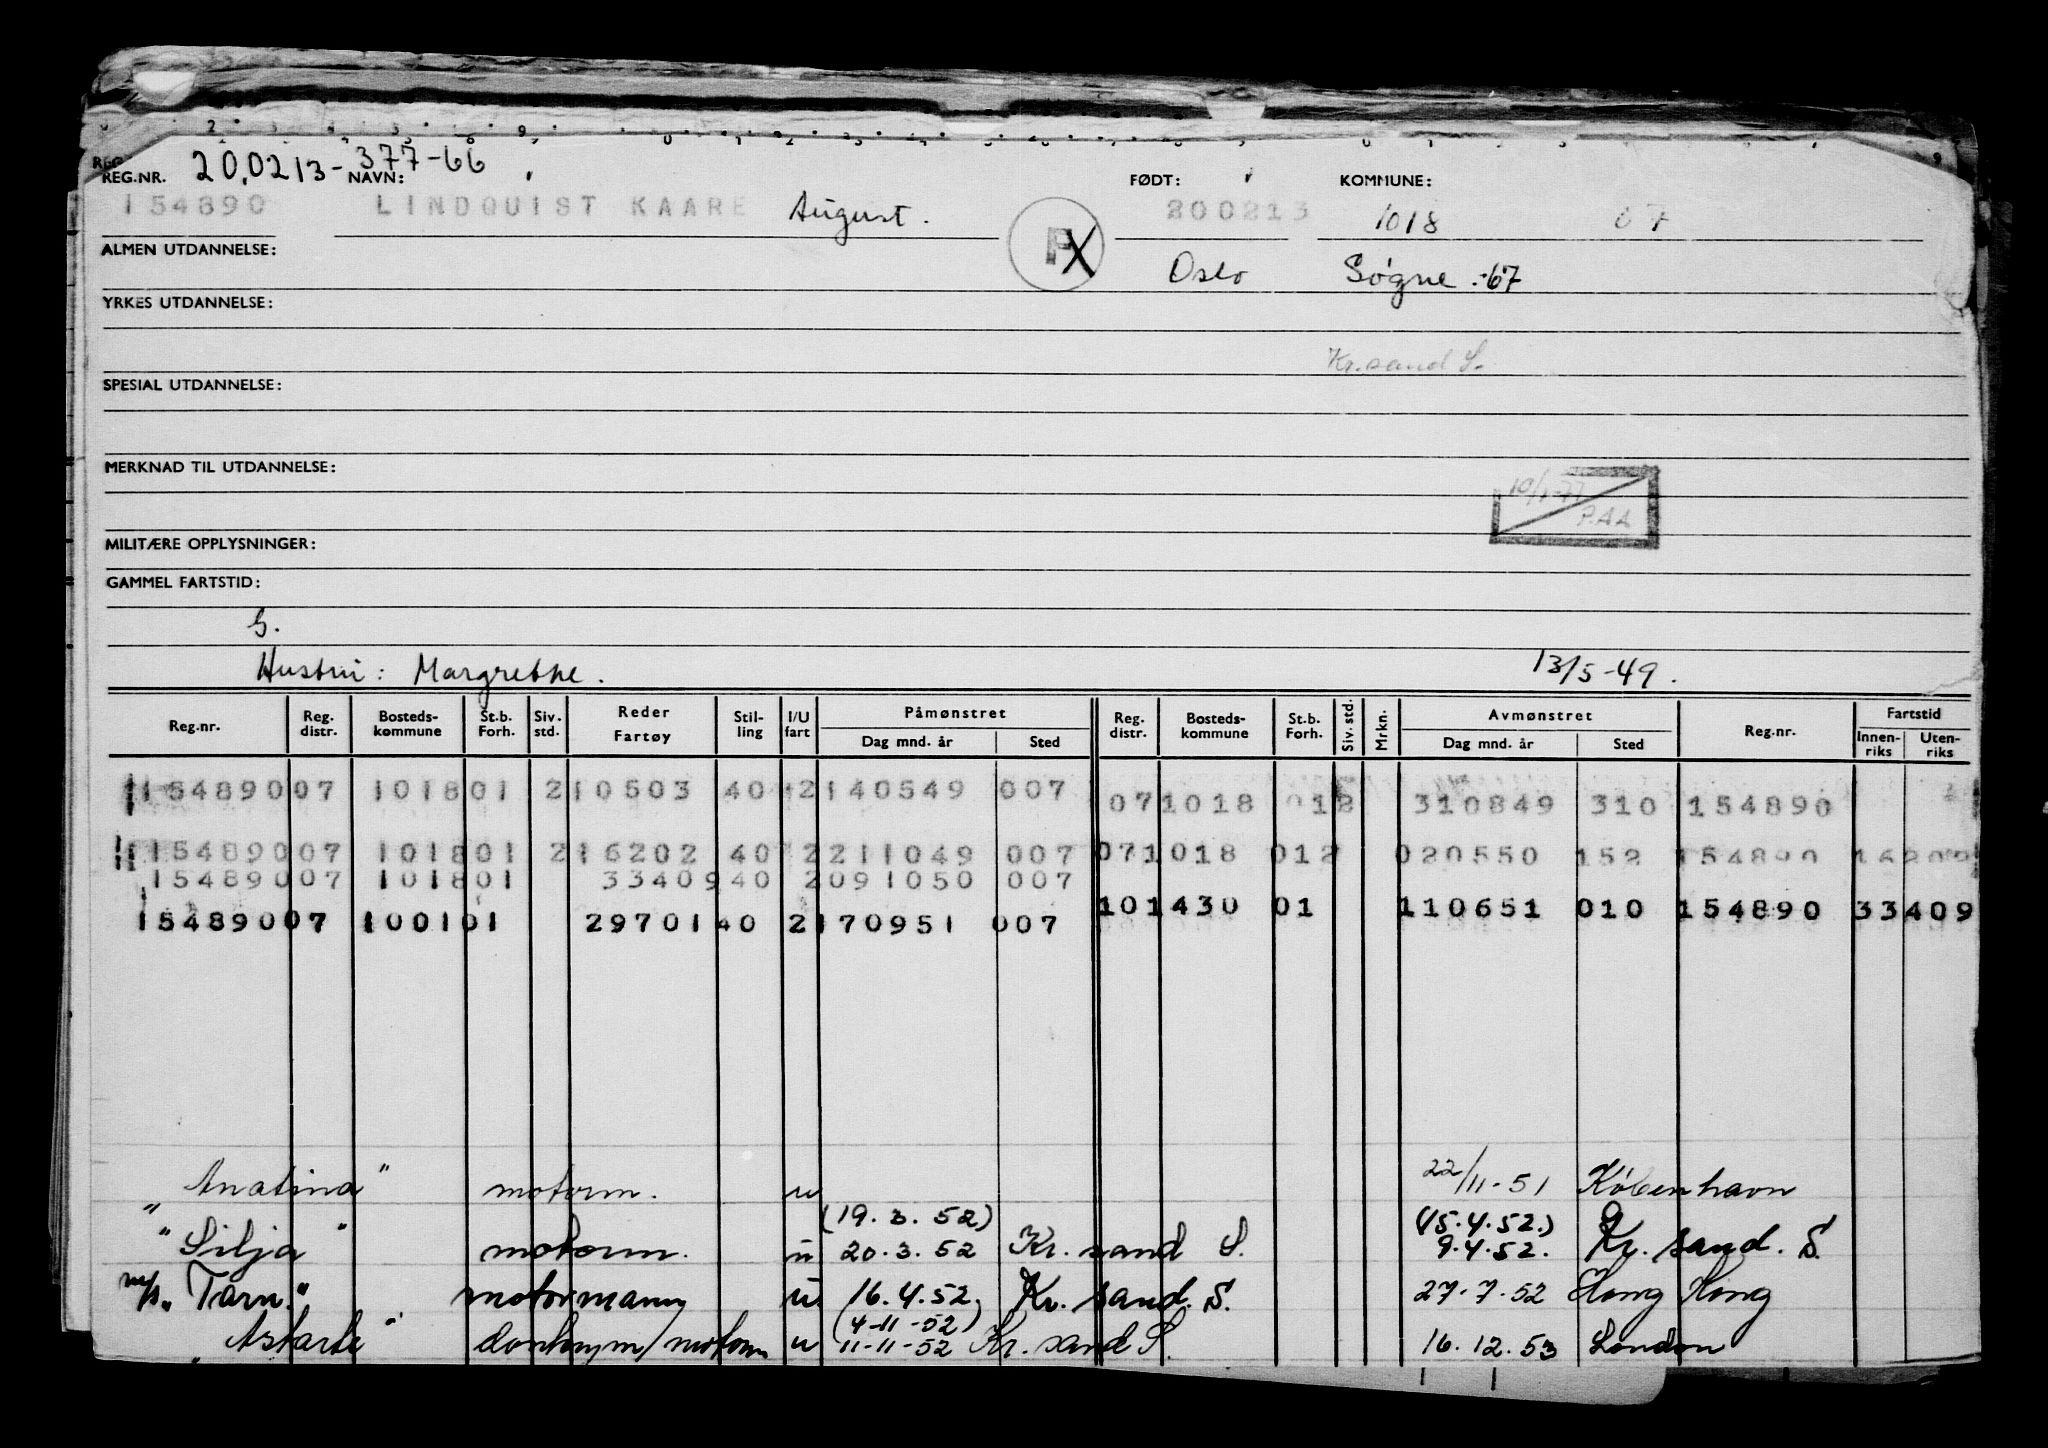 REG.NR. 20.0213-377-66 NAVN: FØDT: KOMMUNE:
154890 LINDQUIST KAARE August. 200213 1018 07
PX
ALMEN UTDANNELSE: Oslo Søgne :67
YRKES UTDANNELSE:
Kr.sand S.
SPESIAL UTDANNELSE:
MERKNAD TIL UTDANNELSE:
PAA
MILITÆRE OPPLYSNINGER:
GAMMEL FARTSTID:
G.
Hustru: Margrethe. 13/5-49.
Reg.nr. Reg. distr. Bosteds-kommune St.b. Forh. Siv. std. Reder Fartøy Stil-ling I/U fart Påmønstret Dag mnd. år Sted Reg. distr. Bosteds-kommune St.b. Forh. Siv. std. Mrkn. Avmønstret Dag mnd. år Sted Reg.nr. Fartstid Innen-riks Uten-riks
154890 07 1018 01 2 10503 40 2 140549 007 07 1018 01 2 310849 310 154890
154890 07 1018 01 2 16202 40 2 211049 007 07 1018 01 2 020550 152 154890 16202
154890 07 1018 01 33409 40 2 091050 007
10 1430 01 110651 010 154890 33409
154890 07 1001 01 29701 40 2 170951 007
"Anatina" motorm. u 22/11-51 København
(19.3.52) (15.4.52.)
"Silja" motorm. u 20.3.52 Kr. sand S. 9.4.52. Kr. sand. S.
m/s "Tarn." motormann u. 16.4.52. Kr. sand. S. 27-7-52 Hong Kong
(4-11-52)
"Astarte" donkeym/motorm u 11-11-52 Kr. sand S. 16.12.53 London